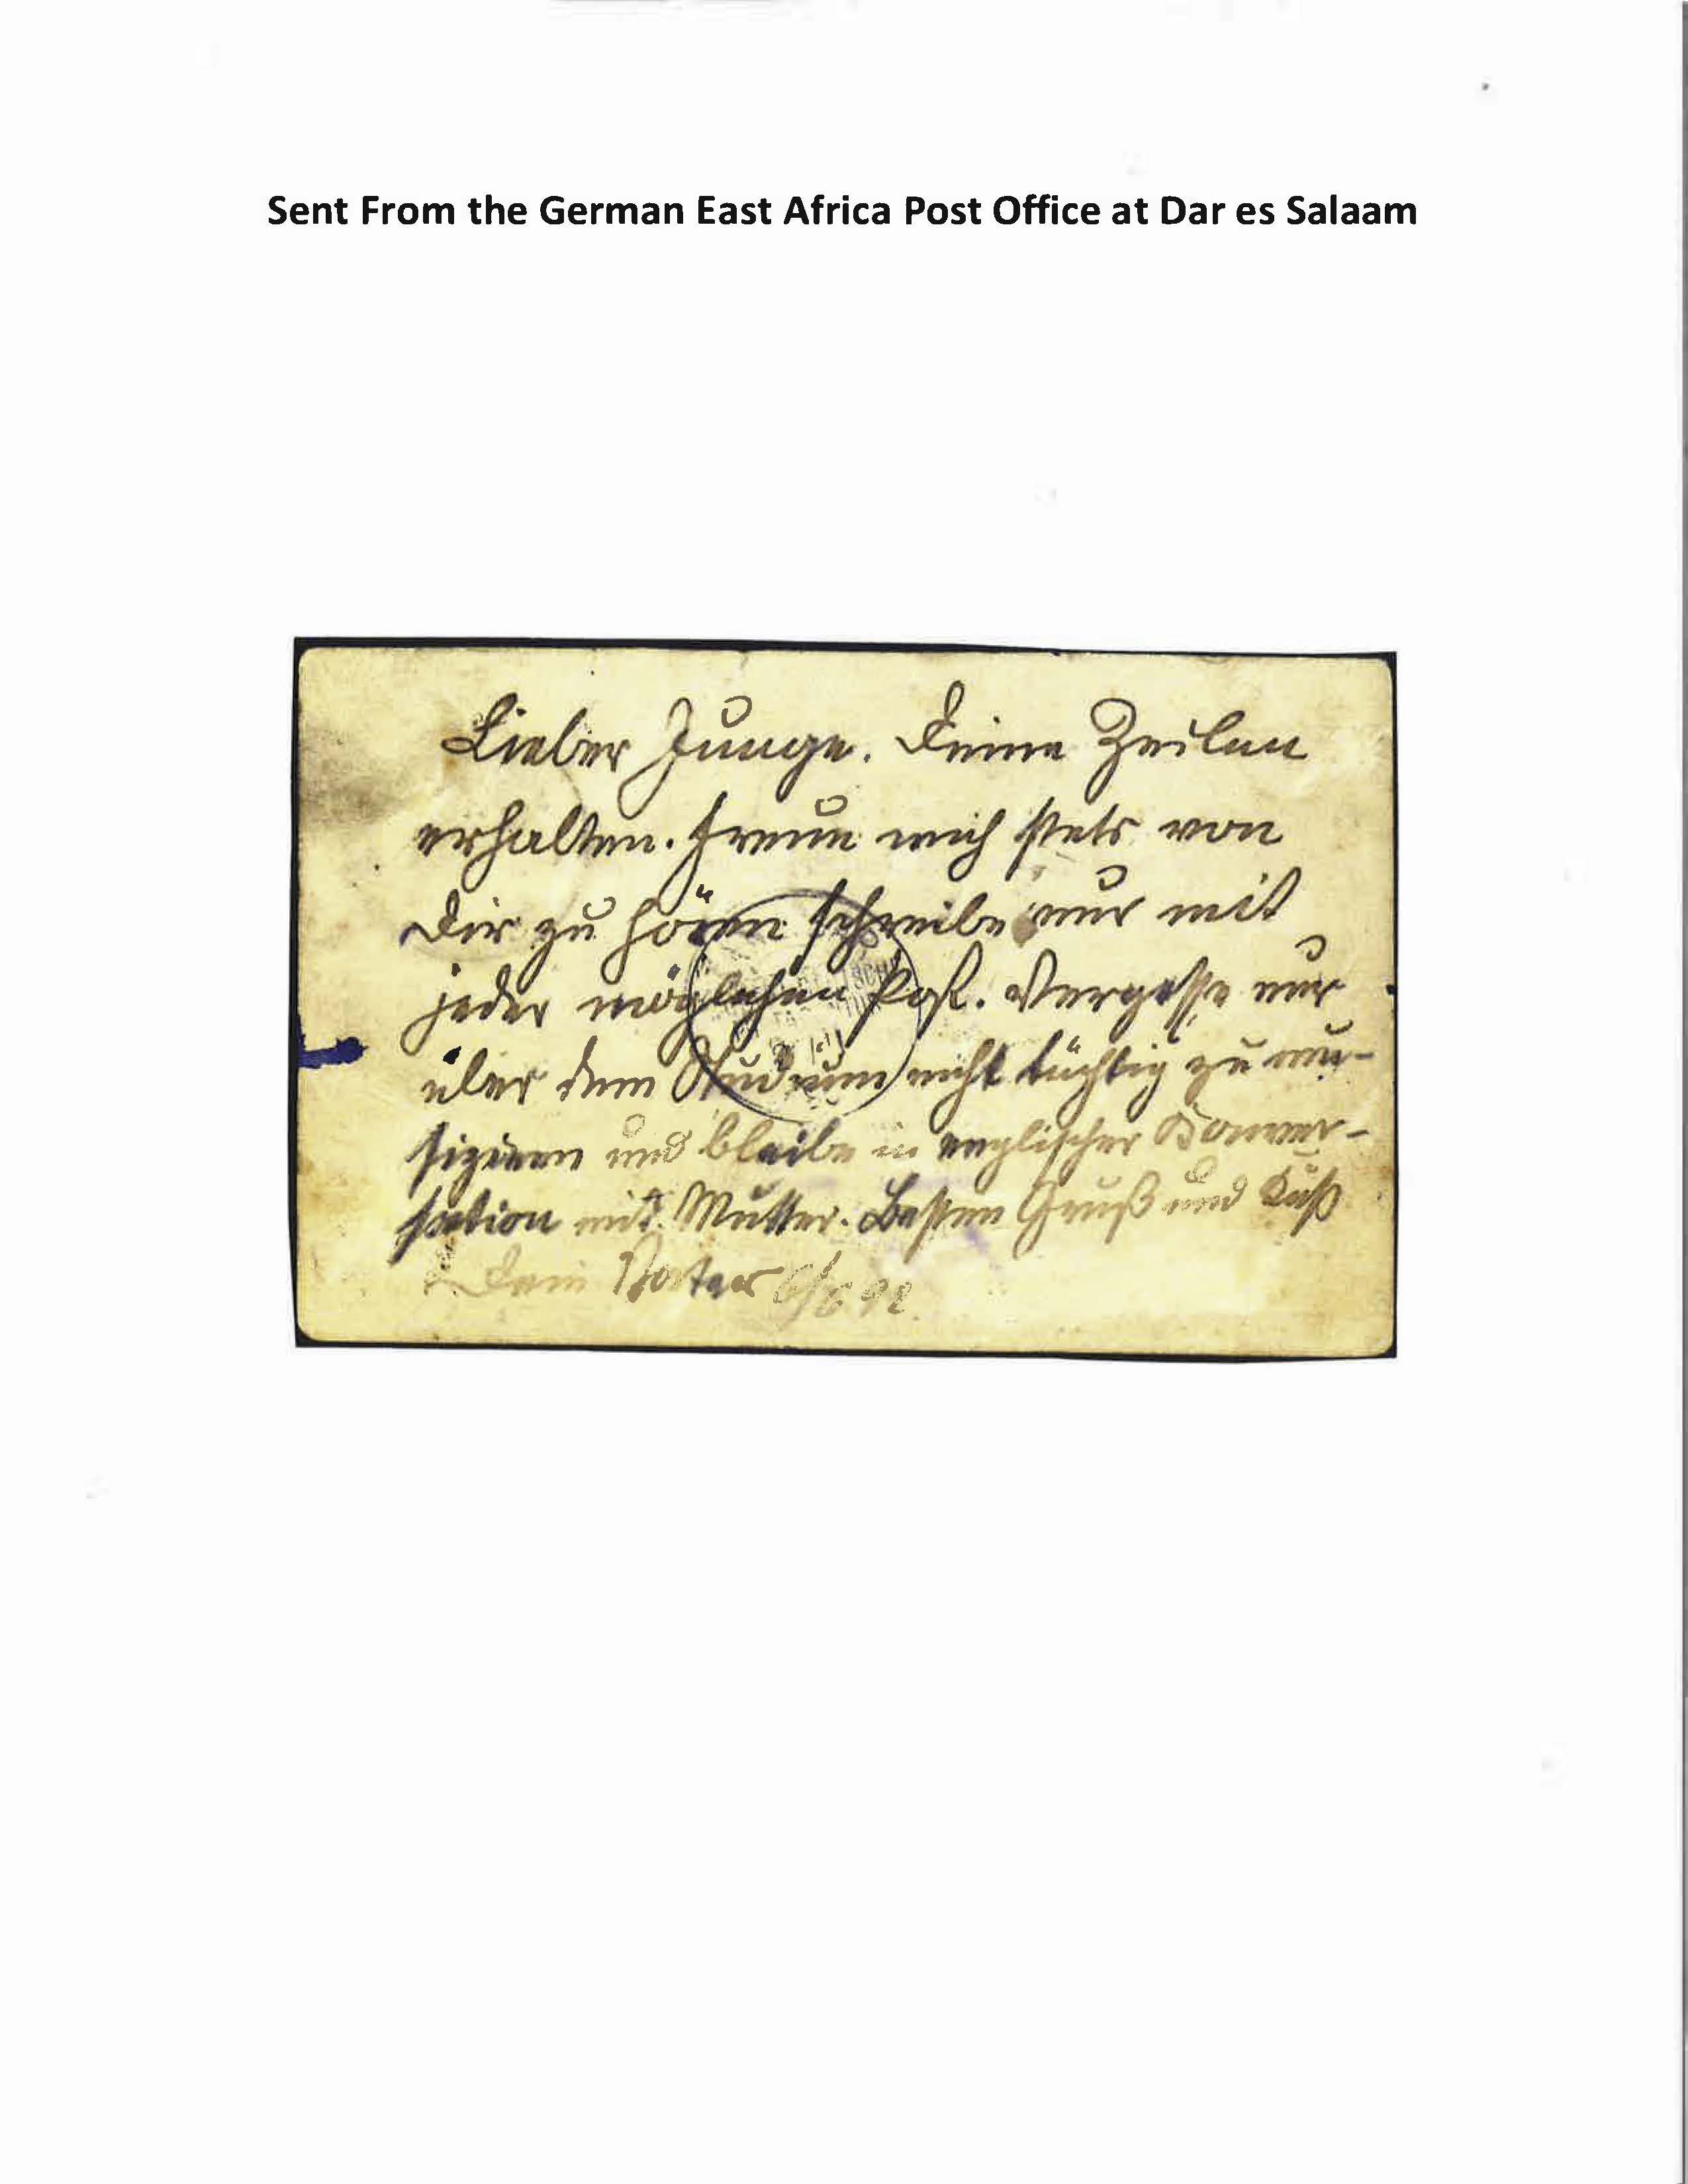 Sent From the German East Africa Post Office at Dar es Salaam
Lieber Junge. Deine Zeilen
erhalten. Freue mich stets von
Dir zu hören schreibe nur mit
jeder möglichen Post. Vergesse nur
über dem Studium nicht tüchtig zu mu-
siziren und bleibe in englischer Konver-
sation mit Mutter. Besten Gruß und Kuß
Dein Vater 6/6 98.